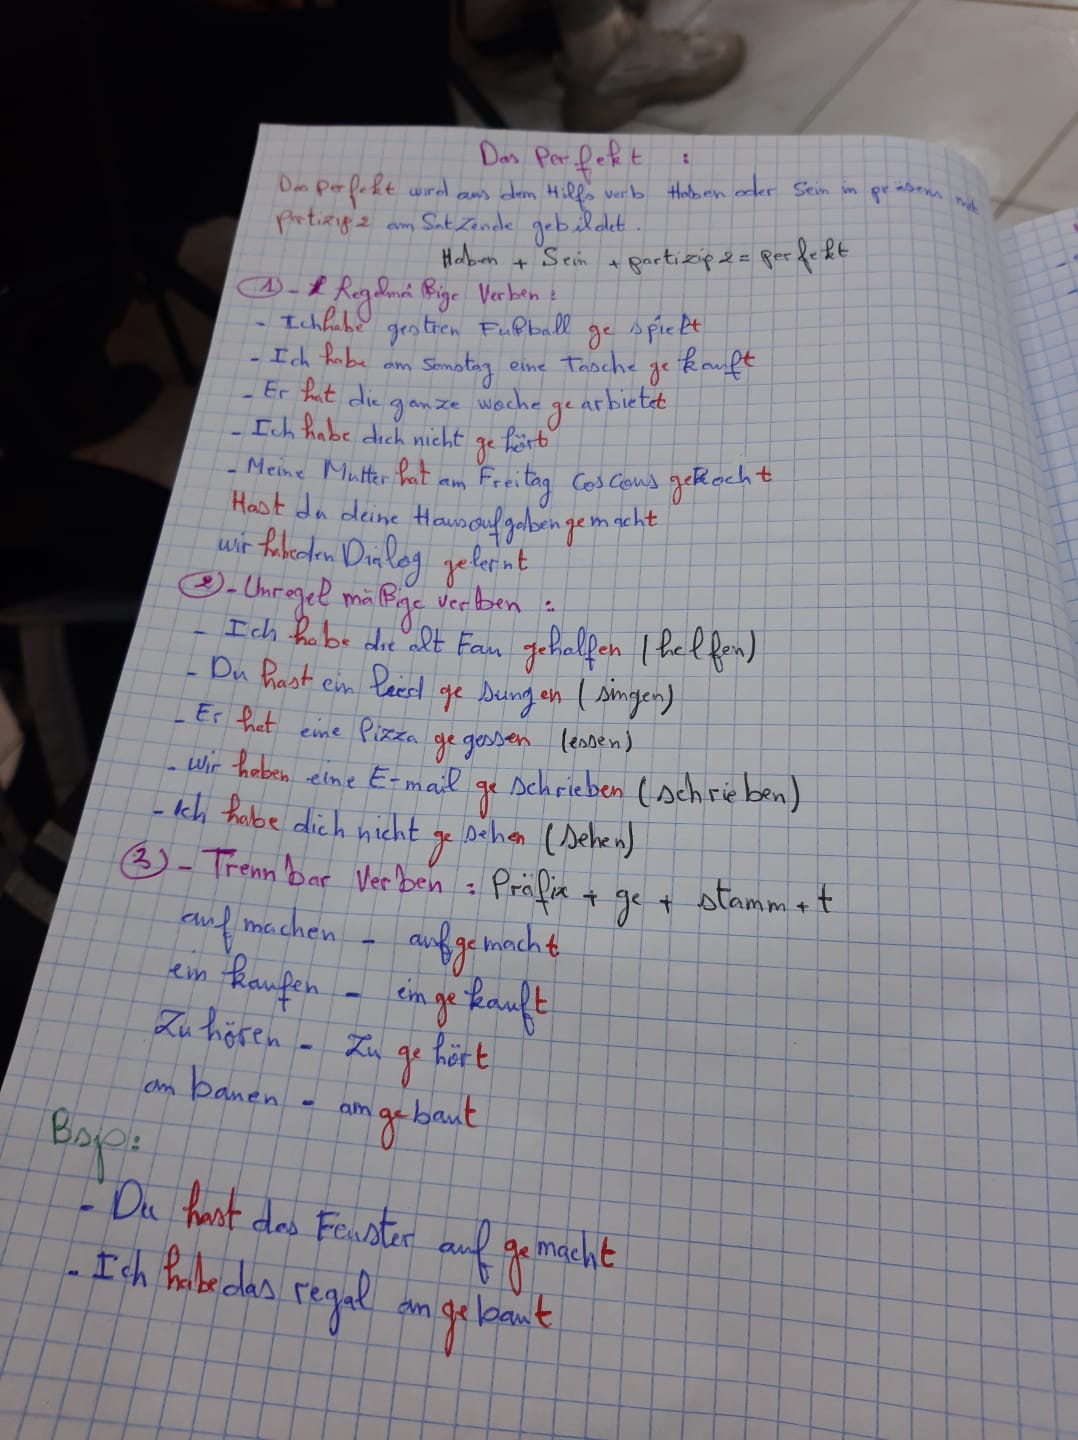 Das Perfekt :
Das Perfekt wird aus dem Hilfs verb Haben oder Sein in präsens mit
Partizip 2 am Satzende gebildet.
Haben + Sein + partizip 2 = perfekt
1 - Regelmäßige Verben :
- Ich habe gestren Fußball ge spielt
- Ich habe am Samstag eine Tasche ge kauft
- Er hat die ganze woche ge arbietet
- Ich habe dich nicht ge hört
- Meine Mutter hat am Freitag Coscous gekocht
Hast du deine Hausaufgaben gemacht
wir habe den Dialog gelernt
2 - Unregel mäßige verben :
- Ich habe die alt Fau gehalfen (helfen)
- Du hast ein lied ge sungen (singen)
- Er hat eine Pizza ge gessen (essen)
- wir haben eine E-mail ge schrieben (schrieben)
- Ich habe dich nicht ge sehen (sehen)
3 - Trenn bar Verben : Präfix + ge + stamm + t
auf machen - aufgemacht
ein kaufen - ein ge kauft
Zu hören - Zu ge hört
an bauen - an gebaut
Bsp:
- Du hast das Fenster auf gemacht
- Ich habe das regal an gebaut